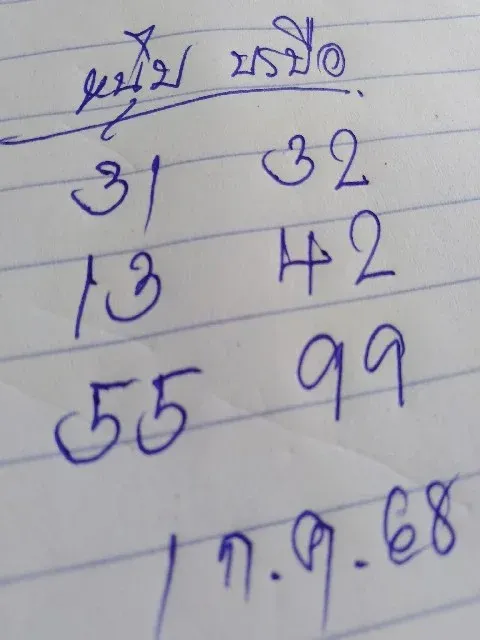 หนุ่ม บรบือ
31 32
13 42
55 99
1 ก.ค.68